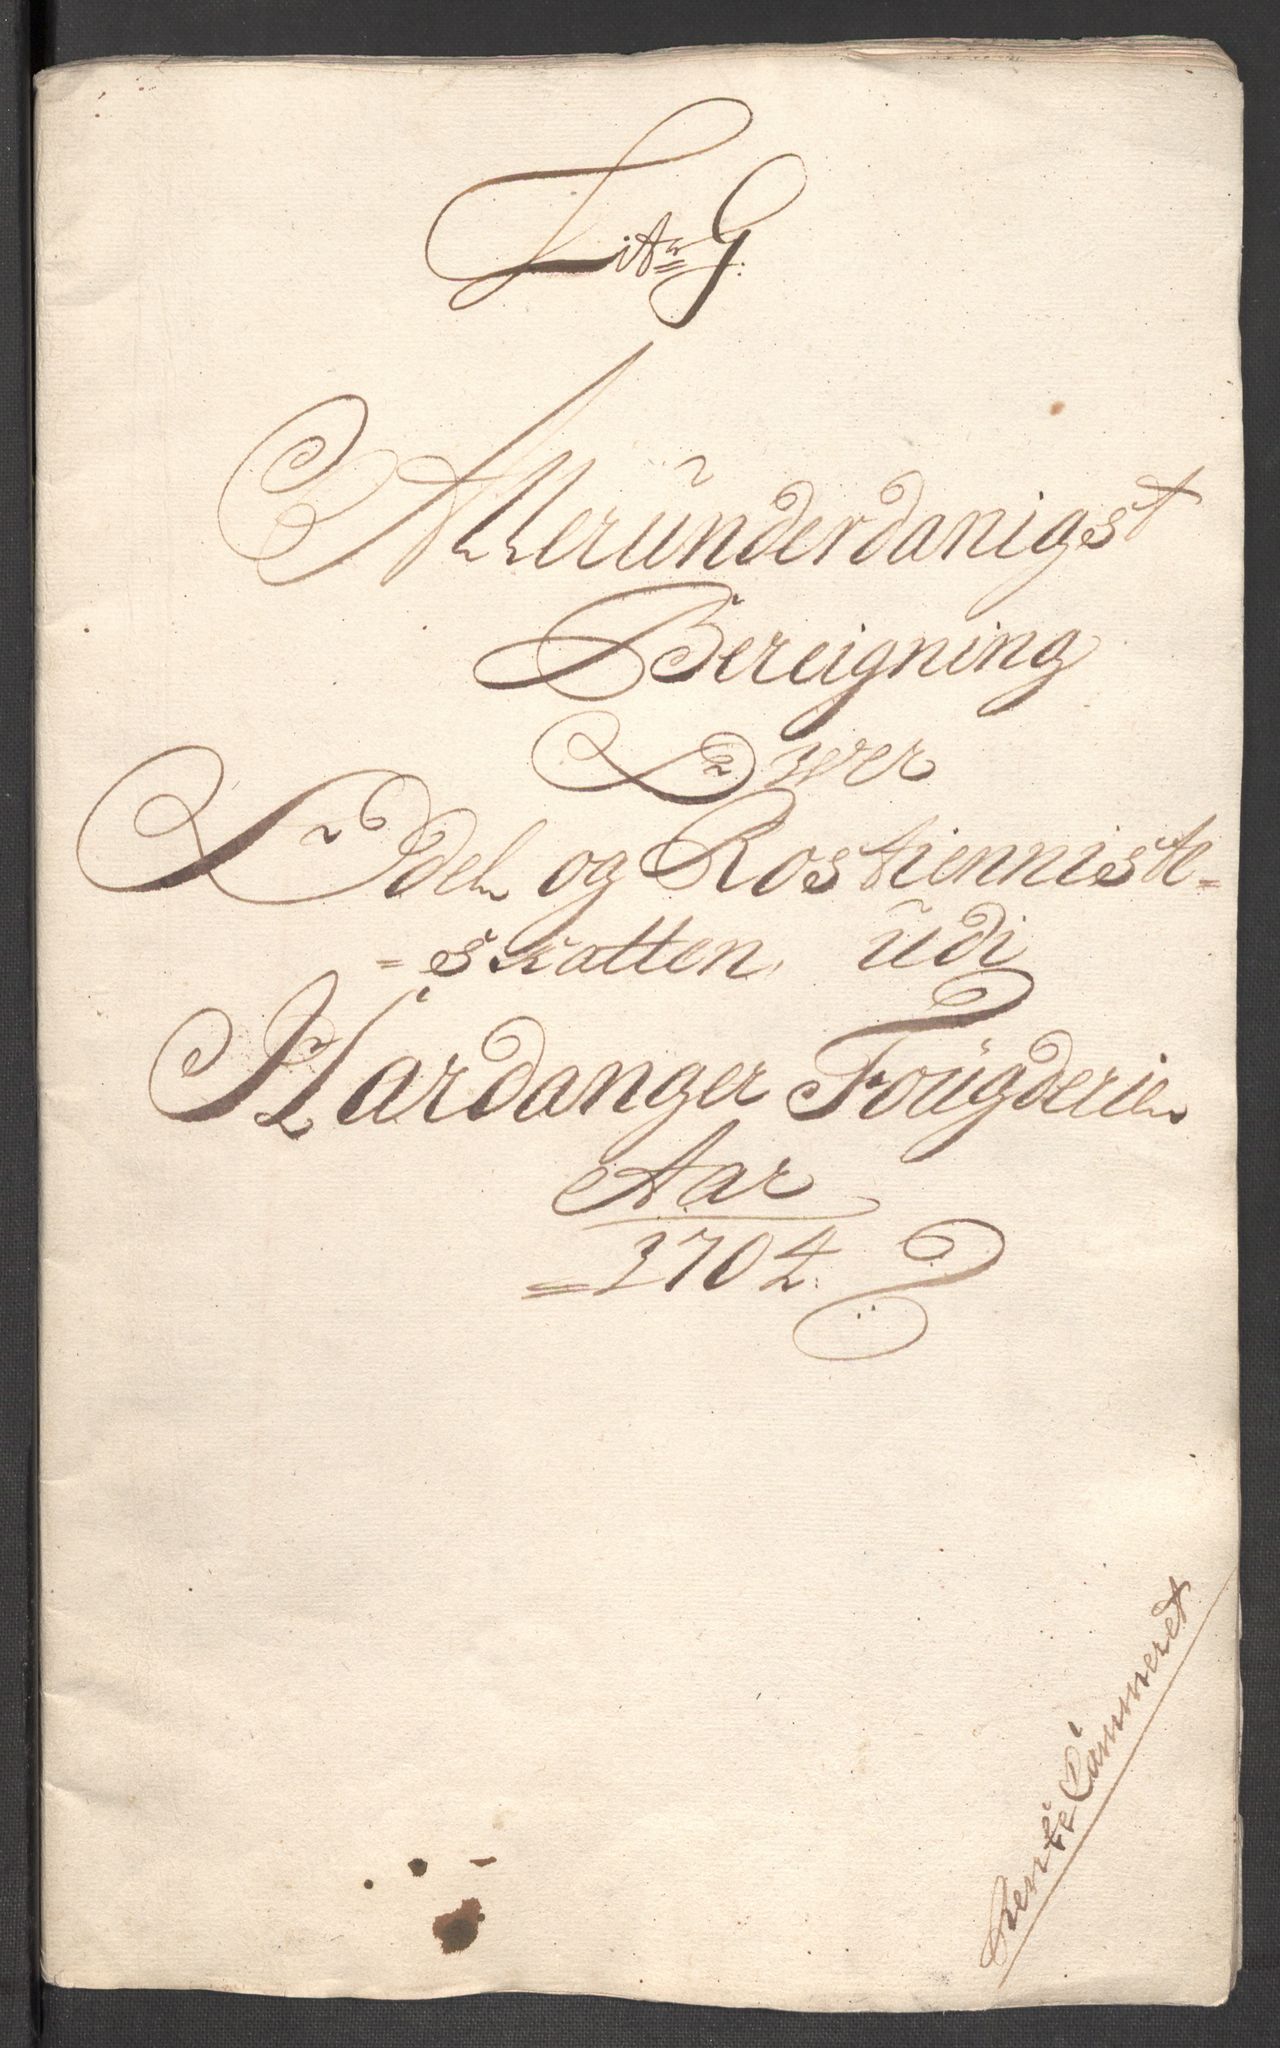 Lit: G:
Allerunderdanigst
Bereigning
Ower
Odel og Rostienniste=
=skatten, udi
Hardanger Fougderie
Aar
1704.
Rente Cammeret